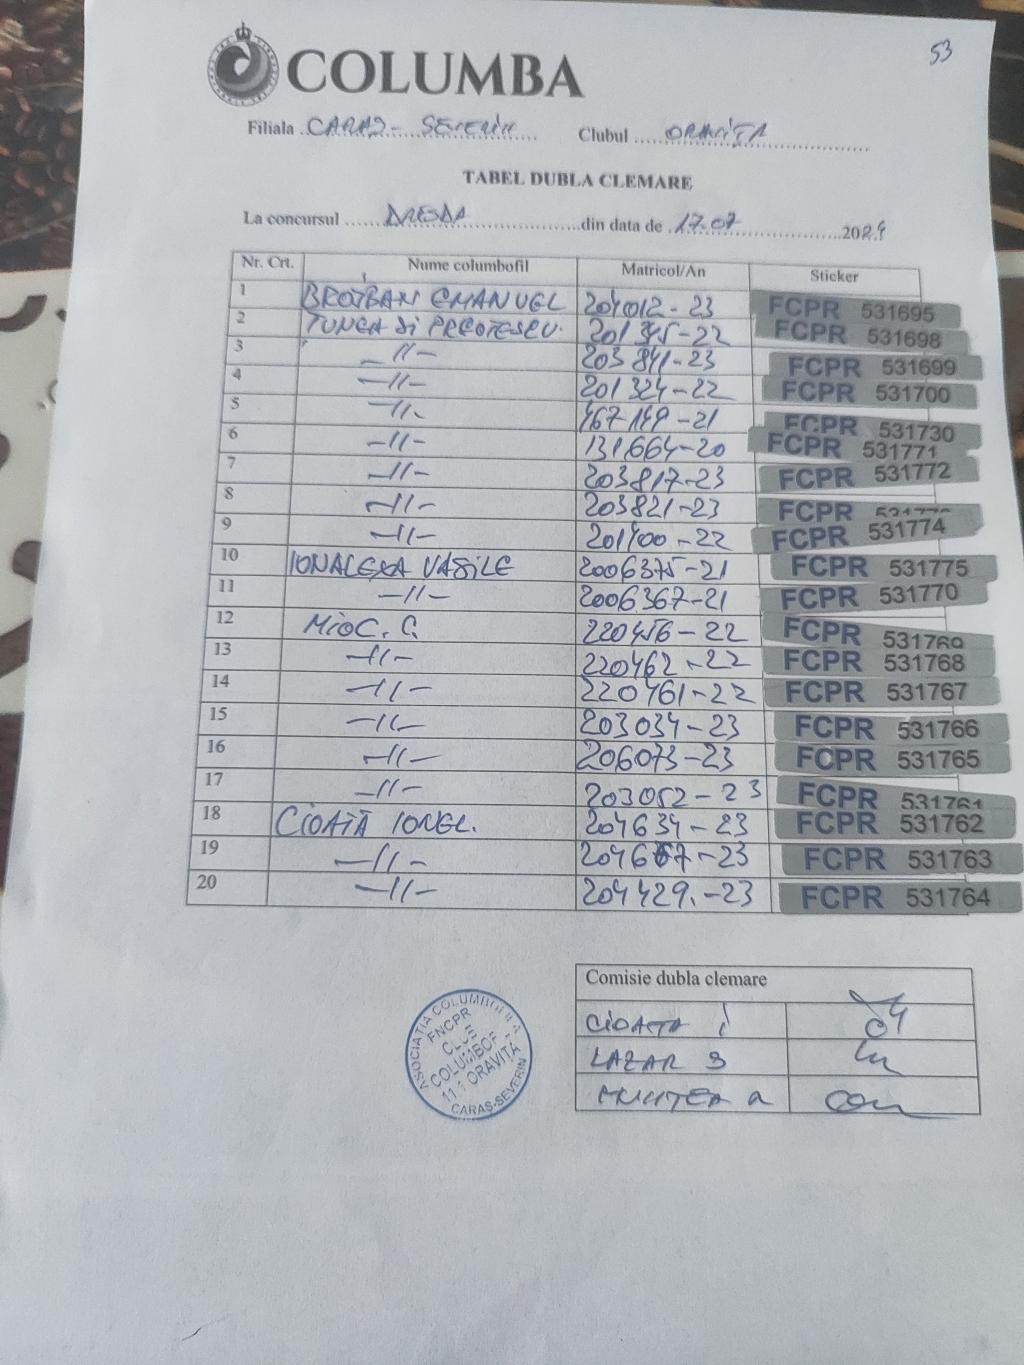 53
COLUMBA
Filiala CARAS - SEVERIN Clubul ORAVITA
TABEL DUBLA CLEMARE
La concursul DRESDA din data de 17.07 2024
Nr. Crt. Nume columbofil Matricol/An Sticker
1 BROTBAN EMANUEL 204012-23 FCPR 531695
2 TUNEA SI PREOTESCU. 201345-22 FCPR 531698
3 -//- 203841-23 FCPR 531699
4 -//- 201324-22 FCPR 531700
5 -//- 467149-21 FCPR 531730
6 -//- 131664-20 FCPR 531771
7 -//- 203817-23 FCPR 531772
8 -//- 203821-23 FCPR
9 -//- 201400-22 FCPR 531774
10 IONALEXA VASILE 2006375-21 FCPR 531775
11 -//- 2006367-21 FCPR 531770
12 MIOC. C. 220456-22 FCPR 531769
13 -//- 220462-22 FCPR 531768
14 -//- 220461-22 FCPR 531767
15 -//- 203034-23 FCPR 531766
16 -//- 206073-23 FCPR 531765
17 -//- 203052-23 FCPR 531761
18 CIOATĂ IONEL. 204634-23 FCPR 531762
19 -//- 204667-23 FCPR 531763
20 -//- 204429.-23 FCPR 531764
Comisie dubla clemare
CIOATA I
LAZAR S
ASOCIATIA COLUMBOFILA
FNCPR
CLUB
COLUMBOF
ORAVIȚA
CARAS-SEVERIN